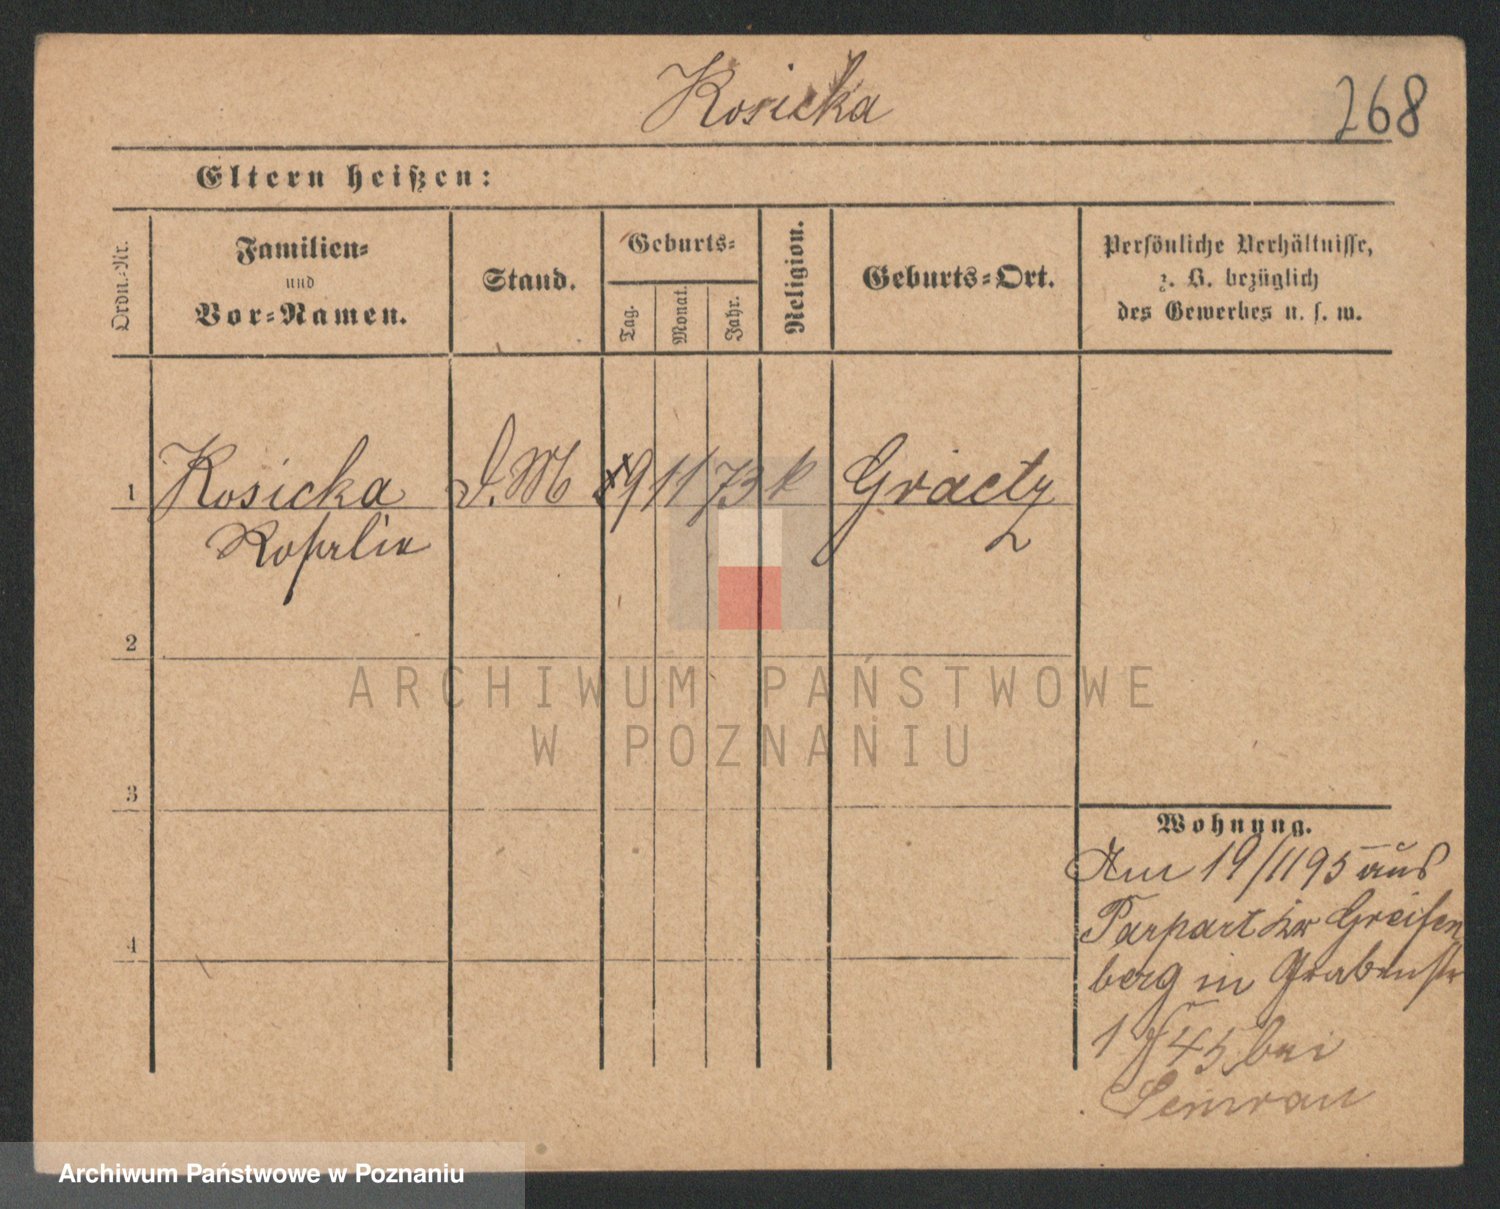 Kosicka
268
Eltern heißen:
Ordn.-Nr.
Familien-
und
Vor-Namen.
Stand.
Geburts-
Tag.
Monat.
Jahr.
Religion.
Geburts-Ort.
Persönliche Verhältnisse,
z. B. bezüglich
des Gewerbes u. s. w.
1 Kosicka D. M 19 11 73 k Graetz
2
3
4
Wohnung.
Am 19/11 95 aus
Parpart Kr Greifen
berg in Grabenstr
1 J 45 bei
Semrau
ARCHIWUM PAŃSTWOWE
W POZNANIU
Archiwum Państwowe w Poznaniu